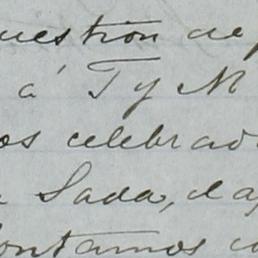 uestión de
á T y M
os celebrad
Sada, el a
ontamos co